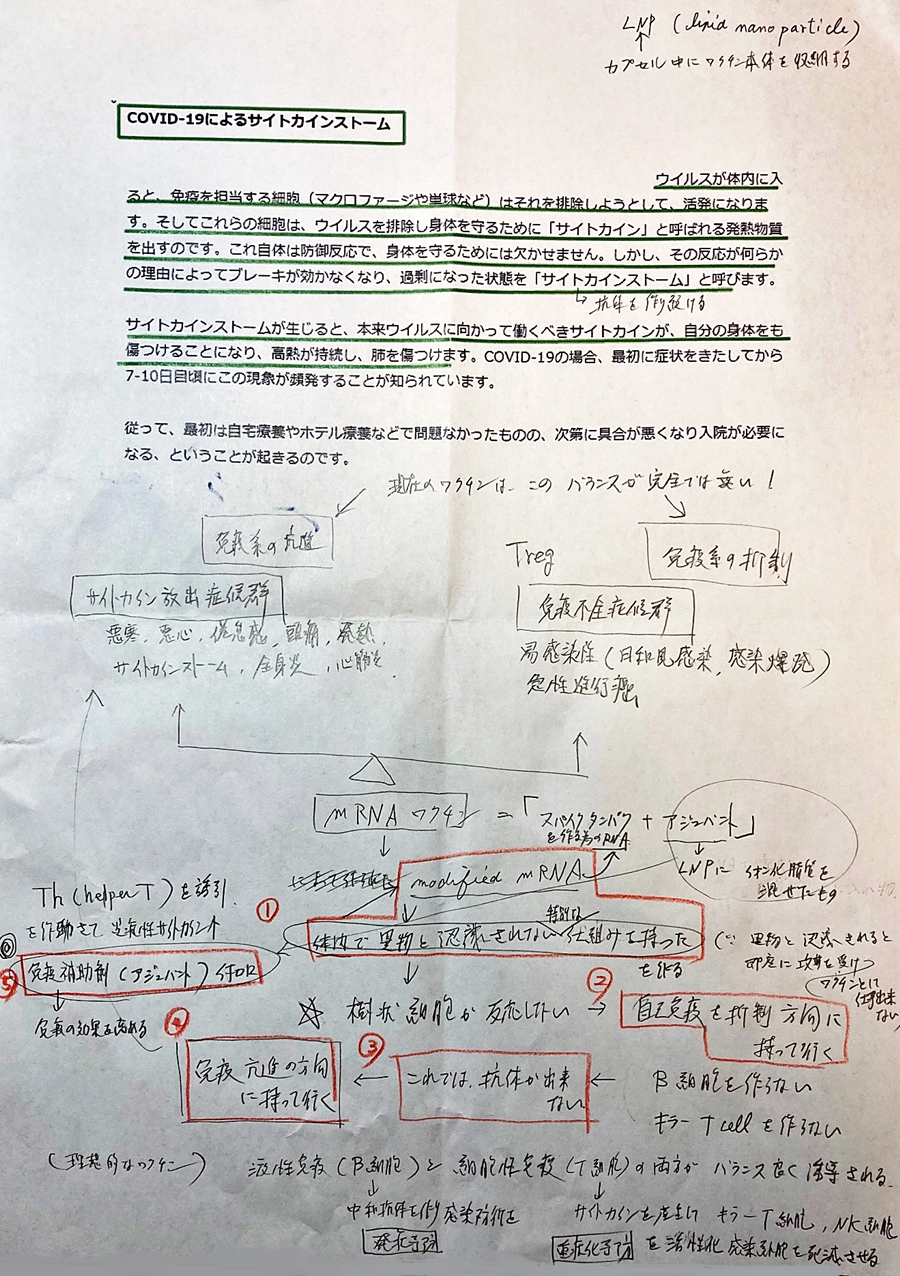 LNP (lipid nanoparticle)
カプセル中にワクチン本体を収納する
COVID-19によるサイトカインストーム
ウイルスが体内に入
ると、免疫を担当する細胞（マクロファージや単球など）はそれを排除しようとして、活発になりま
す。そしてこれらの細胞は、ウイルスを排除し身体を守るために「サイトカイン」と呼ばれる発熱物質
を出すのです。これ自体は防御反応で、身体を守るためには欠かせません。しかし、その反応が何らか
の理由によってブレーキが効かなくなり、過剰になった状態を「サイトカインストーム」と呼びます。
抗体を作り続ける
サイトカインストームが生じると、本来ウイルスに向かって働くべきサイトカインが、自分の身体をも
傷つけることになり、高熱が持続し、肺を傷つけます。COVID-19の場合、最初に症状をきたしてから
7-10日目頃にこの現象が頻発することが知られています。
従って、最初は自宅療養やホテル療養などで問題なかったものの、次第に具合が悪くなり入院が必要に
なる、ということが起きるのです。
現在のワクチンは、この バランスが完全では無い！
免疫系の亢進
Treg
免疫系の抑制
サイトカイン放出症候群
免疫不全症候群
悪寒、悪心、倦怠感、頭痛、発熱
サイトカインストーム、全身炎、心筋炎
易感染性（日和見感染、感染爆発）
急性進行癌
mRNA ワクチン =「スパイクタンパク + アジュバント」
を作る為のRNA
LNPに イオン化脂質を
混ぜたもの
modified mRNA
Th (helper T) を誘引
を作動させて 炎症性サイトカイン↑
①
特別な
体内で異物と認識されない仕組みを持った
を作る
(∵ 異物と認識されると
即座に攻撃を受け
ワクチンとして
仕事出来ない)
⑤
免疫補助剤（アジュバント）付加
免疫の効果を高める
☆ 樹状細胞が反応しない →
②
自己免疫を抑制方向に
持って行く
④
免疫亢進の方向
に持って行く
③
これでは、抗体が出来
ない
← B細胞を作らない
キラーT cellを作らない
（理想的なワクチン） 液性免疫（B細胞）と 細胞性免疫（T細胞）の両方が バランス良く誘導される。
中和抗体を作り感染防御を
発症予防
サイトカインを産生して キラーT細胞、NK細胞
重症化予防 を活性化 感染細胞を死滅させる